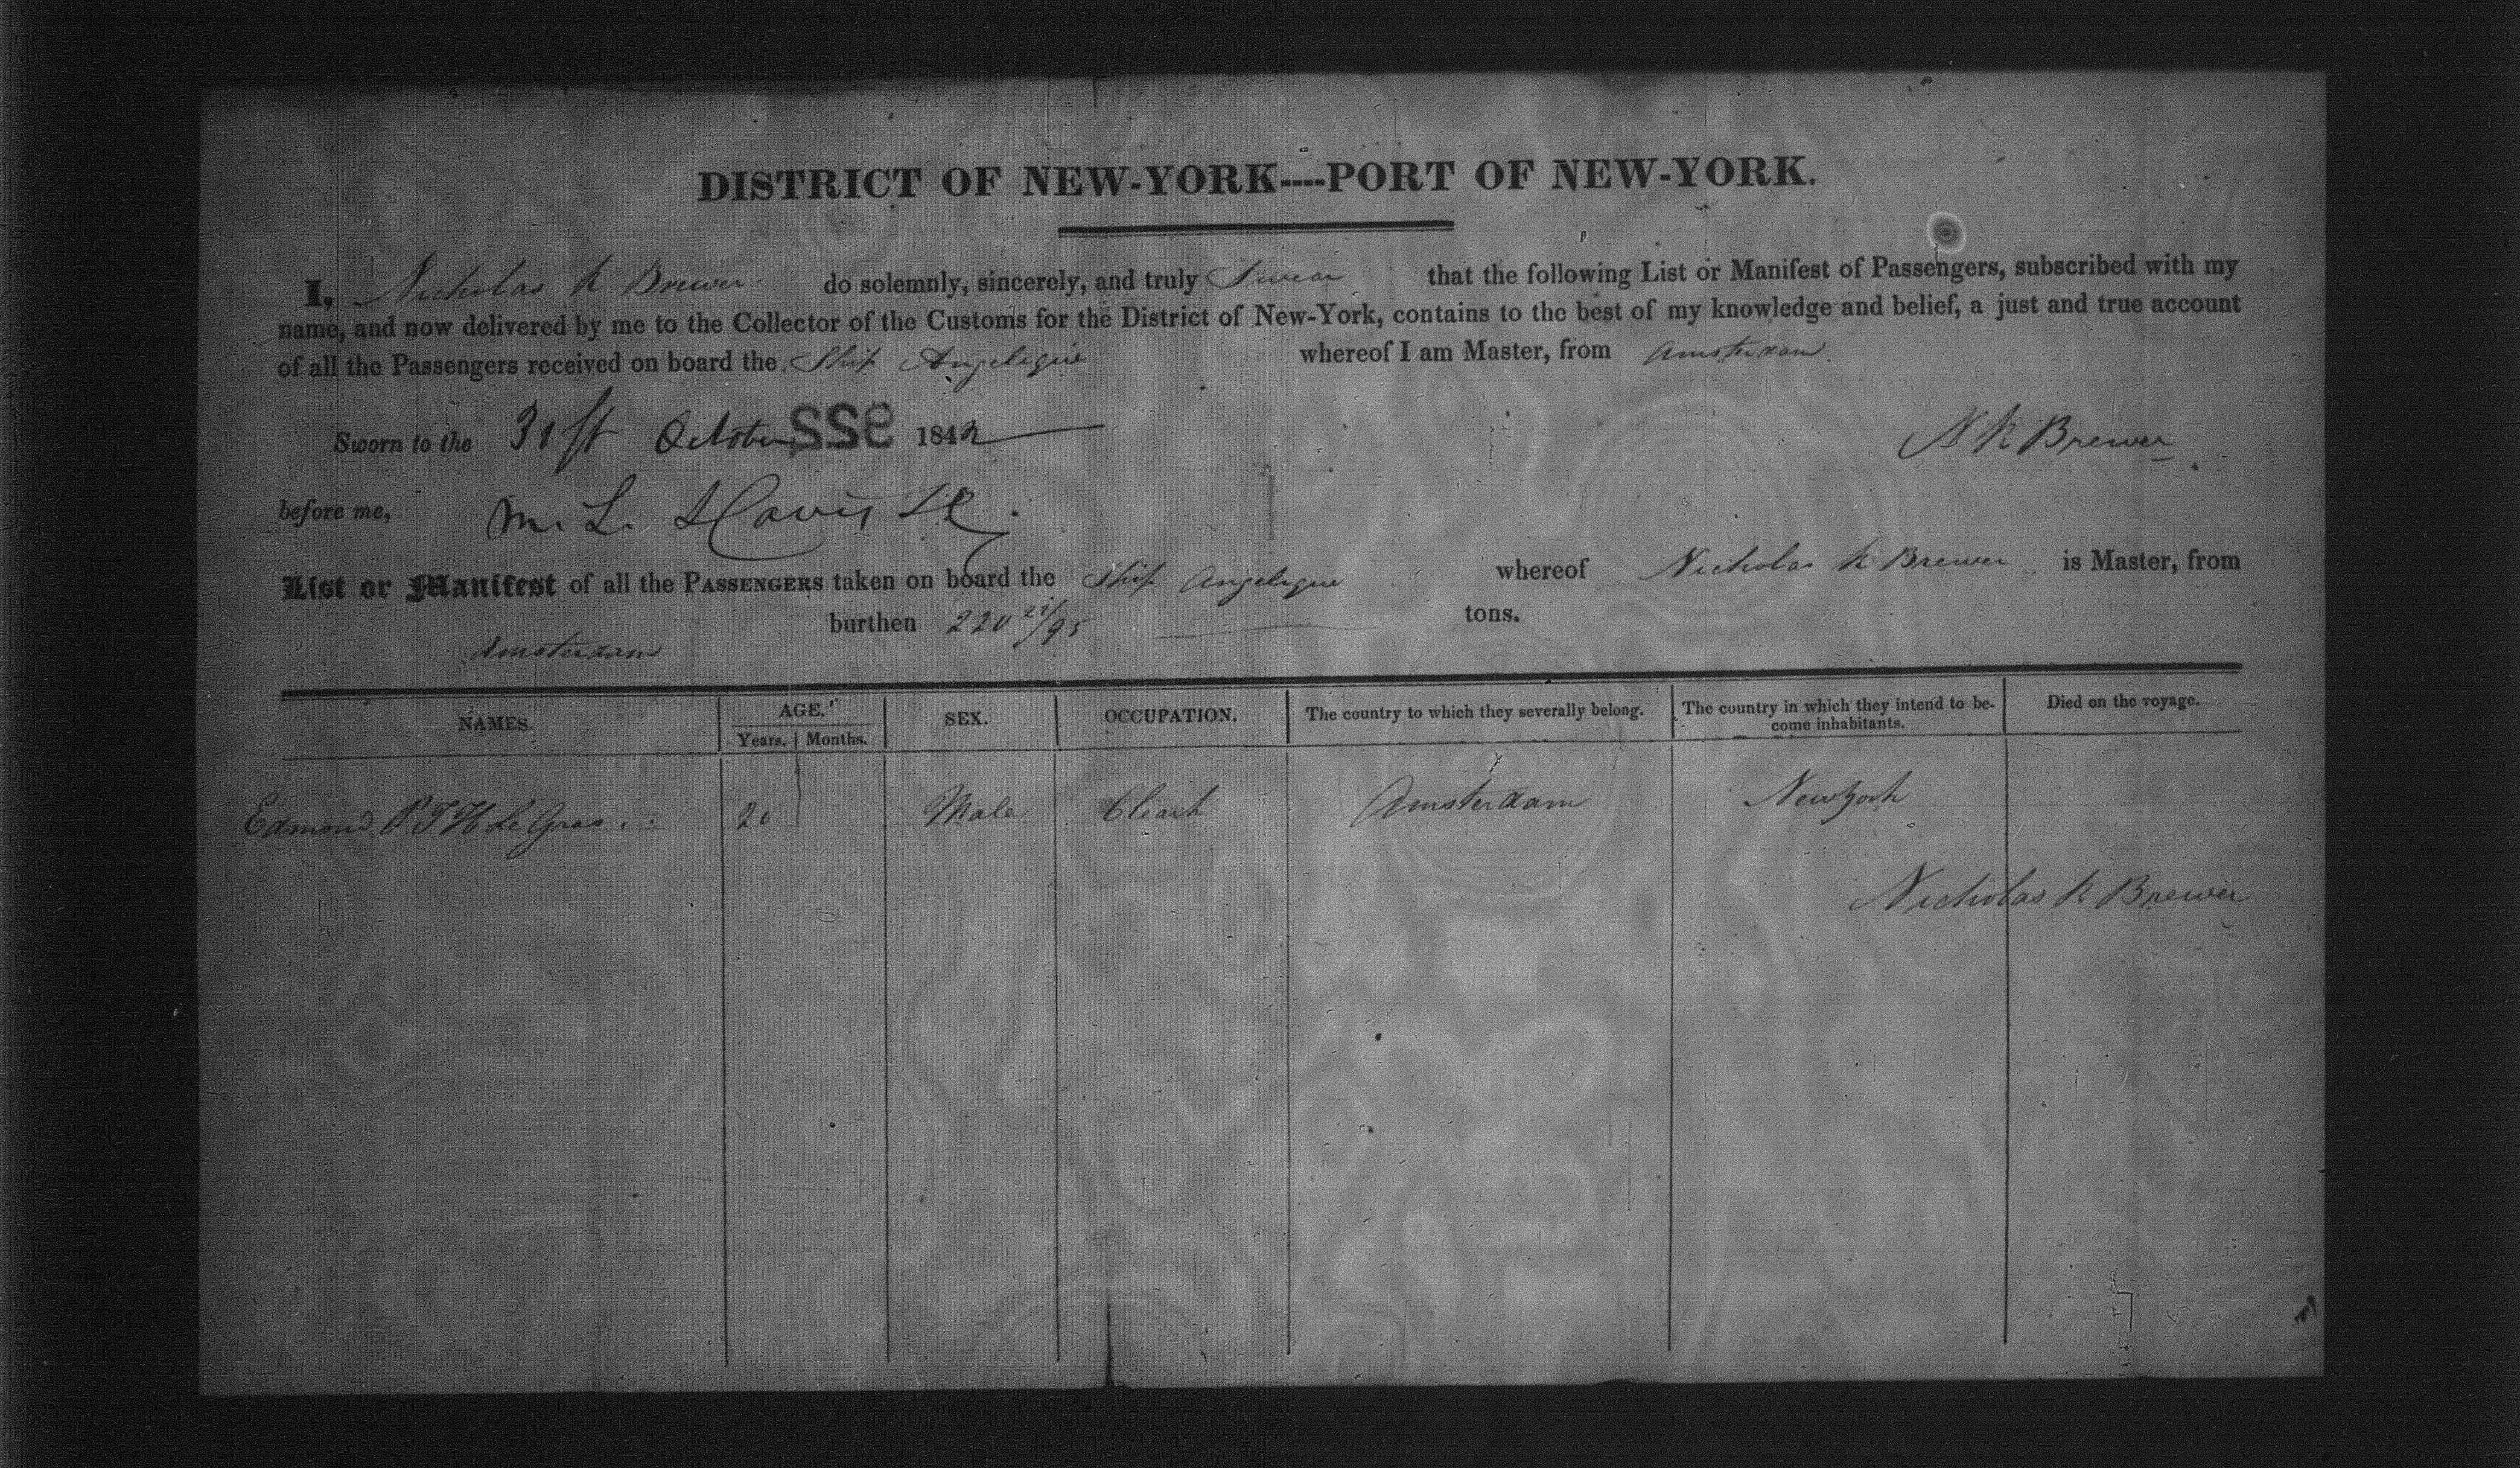 DISTRICT OF NEW-YORK----PORT OF NEW-YORK.
I, Nicholas R Brewer. do solemnly, sincerely, and truly Swear that the following List or Manifest of Passengers, subscribed with my
name, and now delivered by me to the Collector of the Customs for the District of New-York, contains to the best of my knowledge and belief, a just and true account
of all the Passengers received on board the Ship Angelique whereof I am Master, from Amsterdam.
Sworn to the 31st October 1842
N R Brewer
before me, M. L. Davis
List or Manifest of all the PASSENGERS taken on board the Ship Angelique whereof Nicholas R Brewer is Master, from
Amsterdam burthen 220 21/95 tons.
NAMES. AGE. SEX. OCCUPATION. The country to which they severally belong. The country in which they intend to be- Died on the voyage.
Years. Months. come inhabitants.
Edmond P T H Le Gras 20 Male Clark Amsterdam New York
Nicholas R Brewer